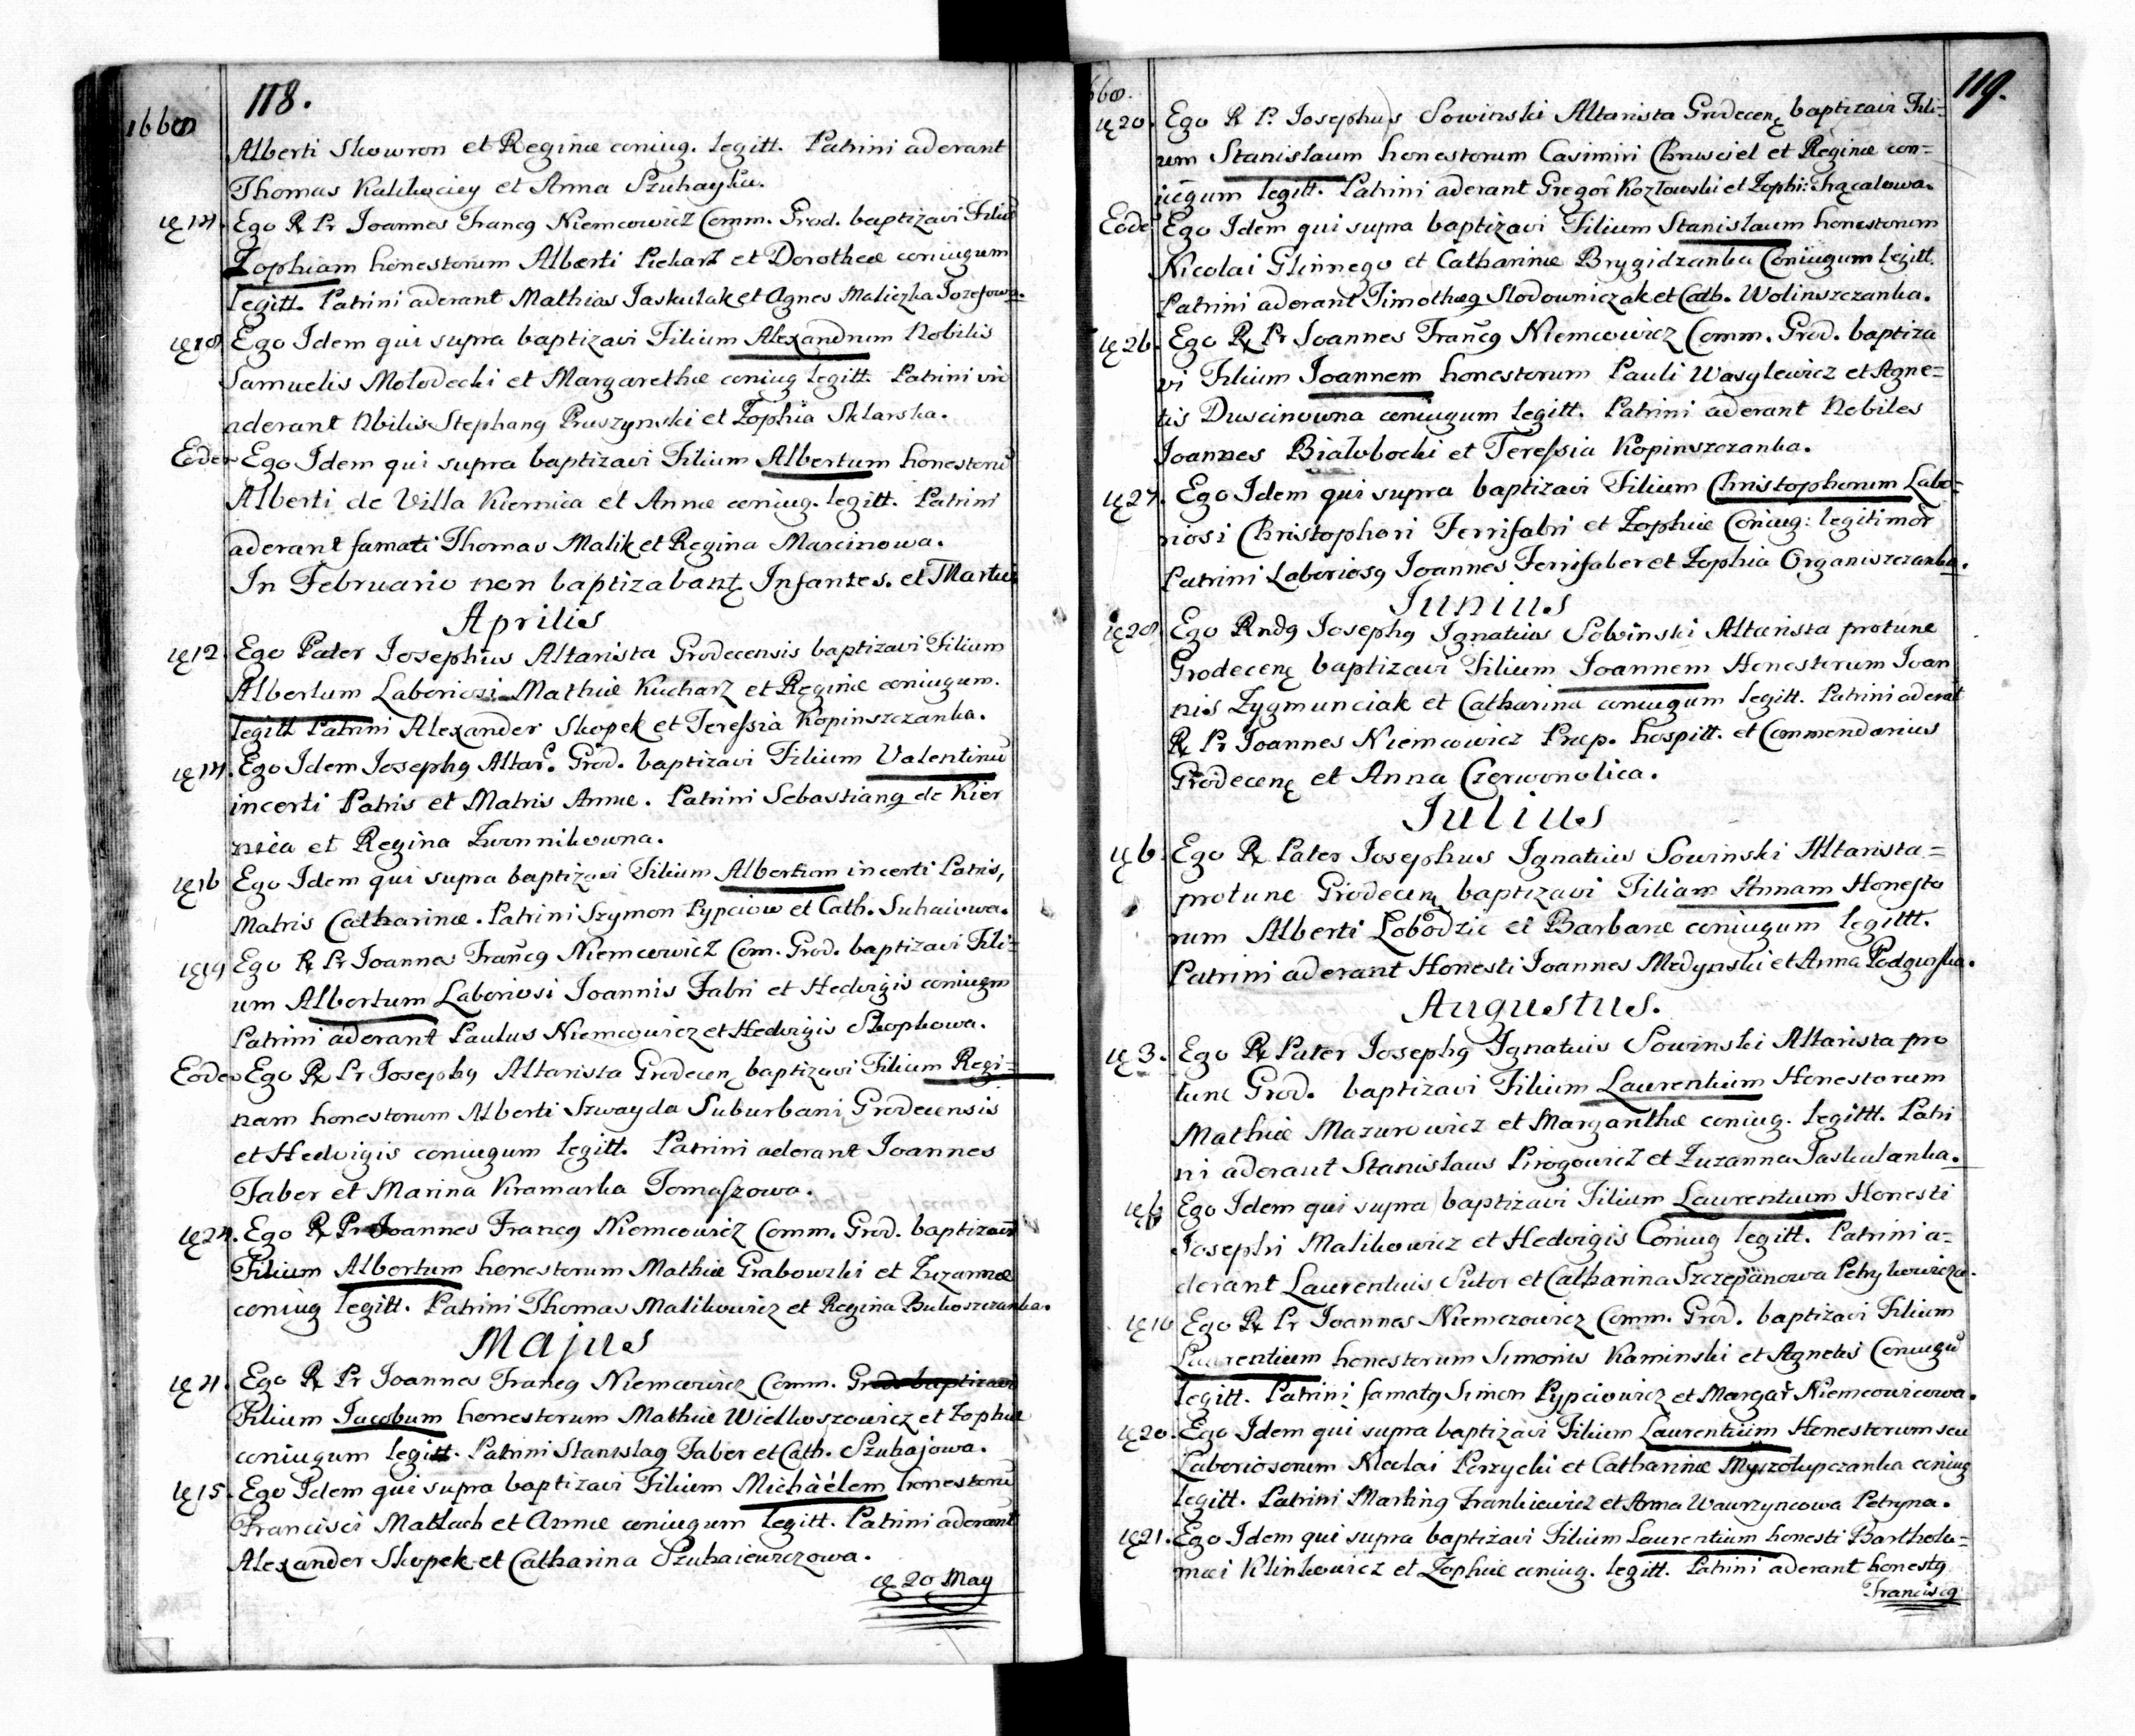 118.
1660
Alberti Skowron et Reginæ coniug. legitt. Patrini aderant
Thomas Kalikuciey et Anna Szuhayka.
Ego R Pr Joannes Francq Niemcowicz Comm. Grod. baptizavi Filiũ
Zophiam honestorum Alberti Piekarz et Dorotheæ coniugum
legitt. Patrini aderant Mathias Jaskulak et Agnes Maliczka Jozefowa.
Ego Idem qui supra baptizavi Filium Alexandrum Nobilis
Samuelis Molodecki et Margarethæ coniug legitt. Patrini
aderant Nbilis Stephanq Pruszynski et Zophia Sklarska.
Eodem Ego Idem qui supra baptizavi Filium Albertum honestorũ
Alberti de Villa Kiernica et Annæ coniug. legitt. Patrini
aderant famati Thomas Malik et Regina Marcinowa.
In Februario non baptizabant Infantes. et Martii
Aprilis
12. Ego Pater Josephus Altarista Grodecensis baptizavi Filium
Albertum Laboriosi Mathiæ Kucharz et Reginæ coniugum.
legitt Patrini Alexander Skopek et Teressia Kopinszczanka.
Ego Idem Josephq Altar. Grod. baptizavi Filium Valentinũ
incerti Patris et Matris Annæ. Patrini Sebastianq de Kier
nica et Regina Zwonnikowna.
16 Ego Idem qui supra baptizavi Filium Albertum incerti Patris,
Matris Catharinæ. Patrini Szymon Pypciow et Cath. Suhaiowa.
19 Ego R Pr Joannes Francq Niemcowicz Com. Grod. baptizavi Fili=
um Albertum Laboriosi Joannis Fabri et Hedvigis coniugm
Patrini aderant Paulus Niemcowicz et Hedvigis Skopkowa.
Eodem Ego R Pr Josephq Altarista Grodecen baptizavi Filium Regi=
nam honestorum Alberti Szwayda Suburbani Grodecensis
et Hedvigis coniugum legitt. Patrini aderant Joannes
Faber et Marina Kramarka Tomaszowa.
24. Ego R Pr Joannes Francq Niemcowicz Comm. Grod. baptizavi
Filium Albertum honestorum Mathiæ Grabowski et Zuzannæ
coniug legitt. Patrini Thomas Malikowicz et Regina Bukoszczanka.
Majus
Ego R Pr Joannes Francq Niemcowicz Comm. Grod. baptizavi
Filium Jacobum honestorum Mathiæ Wielkoszowicz et Zophiæ
coniugum legitt. Patrini Stanislaq Faber et Cath. Szuhajowa.
15. Ego Idem qui supra baptizavi Filium Michàélem honestorũ
Francisci Matlach et Annæ coniugum legitt. Patrini aderant
Alexander Skopek et Catharina Szuhaiewiczowa.
20 May
119.
20. Ego R P. Josephus Sowinski Altarista Grodecen baptizavi Fili=
um Stanislaum honestorum Casimiri Chrusciel et Reginæ con=
iugum legitt. Patrini aderant Gregor Kozłowski et Zophi: Trącalowa.
Eodẽ Ego Idem qui supra baptizavi Filium Stanislaum honestorum
Nicolai Glinnego et Catharinæ Brygidzanka Coniugum legitt.
Patrini aderant Timothæq Slodowniczak et Cath. Wolinszczanka.
26. Ego R Pr Joannes Francq Niemcowicz Comm. Grod. baptiza
vi Filium Joannem honestorum Pauli Wasylewicz et Agne=
tis Duscinowna coniugum legitt. Patrini aderant Nobiles
Joannes Białobocki et Teressia Kopinszczanka.
27. Ego Idem qui supra baptizavi Filium Christophorum Labo=
riosi Christophori Ferrifabri et Zophiæ Coniug: legitimor
Patrini Laboriosq Joannes Ferrifaber et Zophia Organiszczanka.
Junius
Ego Rndq Josephq Ignatius Sowinski Altarista protunc
Grodecen baptizavi Filium Joannem Honestorum Joan
nis Zygmunciak et Catharina coniugum legitt. Patrini aderãt
R Pr Joannes Niemcowicz Præp. hospitt. et Commendarius
Grodecen et Anna Czerwonolica.
Julius
6. Ego R Pater Josephus Ignatius Sowinski Altarista=
protunc Grodecen baptizavi Filiam Annam Honesto
rum Alberti Lobodzic et Barbaræ coniugum legittt.
Patrini aderant Honesti Joannes Medynski et Anna Podgurska.
Augustus.
3. Ego R Pater Josephq Ignatius Sowinski Altarista pro
tunc Grod. baptizavi Filium Laurentium Honestorum
Mathiæ Mazurowicz et Margarithæ coniug. legittt. Patri
ni aderant Stanislaus Pirogowicz et Zuzanna Jaskulanka.
Ego Idem qui supra baptizavi Filium Laurentium Honesti
Josephi Malikowicz et Hedvigis Coniug legitt. Patrini a=
derant Laurentius Sutor et Catharina Szczepanowa Petrykowicza.
10 Ego R Pr Joannes Niemczowicz Comm. Grod. baptizavi Filium
Laurentium honestorum Simonis Kaminski et Agnetis Coniugũ
legitt. Patrini famatq Simon Pypciowicz et Margar Niemcowicowa.
20. Ego Idem qui supra baptizavi Filium Laurentium Honestorum seu
Laboriosorum Nicolai Perzycki et Catharinæ Myszolupczanka coniug
legitt. Patrini Martinq Frankiewicz et Anna Wawrzyncowa Petryna.
21. Ego Idem qui supra baptizavi Filium Laurentium honesti Bartholo=
mæi Klinkowicz et Zophiæ coniug. legitt. Patrini aderant honestq
Franciscq